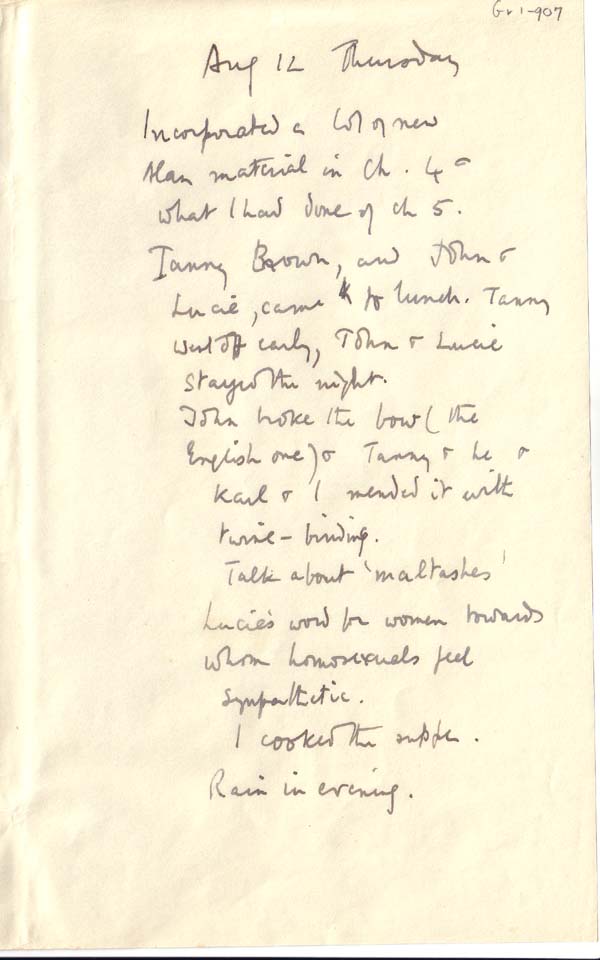 Gr 1-907
Aug 12 Thursday
Incorporated a lot of new
material in Ch. 4 &
what I had done of ch 5.
Tanny Brown, and John &
Lucie, came to lunch. Tanny
went off early, John & Lucie
stayed the night.
John broke the bow (the
English one) & Tanny & he &
Karl & I mended it with
twine-binding.
Talk about 'maltashes'
Lucie's word for women towards
whom homosexuals feel
sympathetic.
I cooked the supper.
Rain in evening.